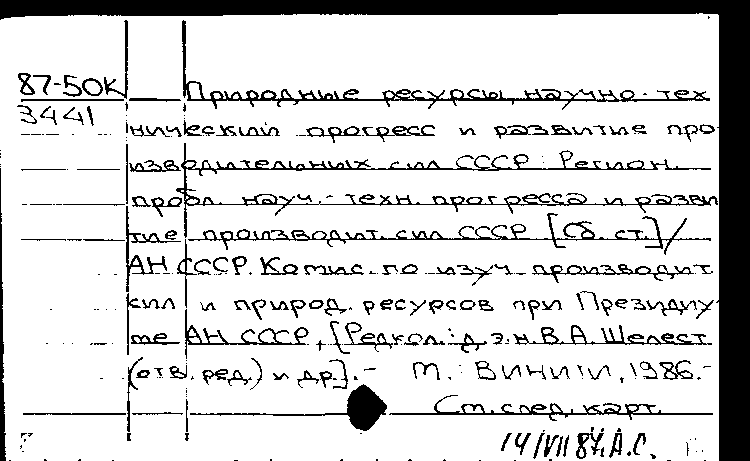 87-50К Природные ресурсы, научно-тех
3441 нический прогресс и развитие про
изводительных сил СССР: Регион.
пробл. науч.-техн. прогресса и разви
тие производит. сил СССР [Сб. ст.]/
АН СССР. Комис. по изуч. производит.
сил и природ. ресурсов при Президиу
ме АН СССР, [Редкол.: д.э.н. В.А. Шелест
(отв. ред.) и др.].- М.: ВИНИТИ, 1986.-
См. след. карт.
14/VII 87. А.С.